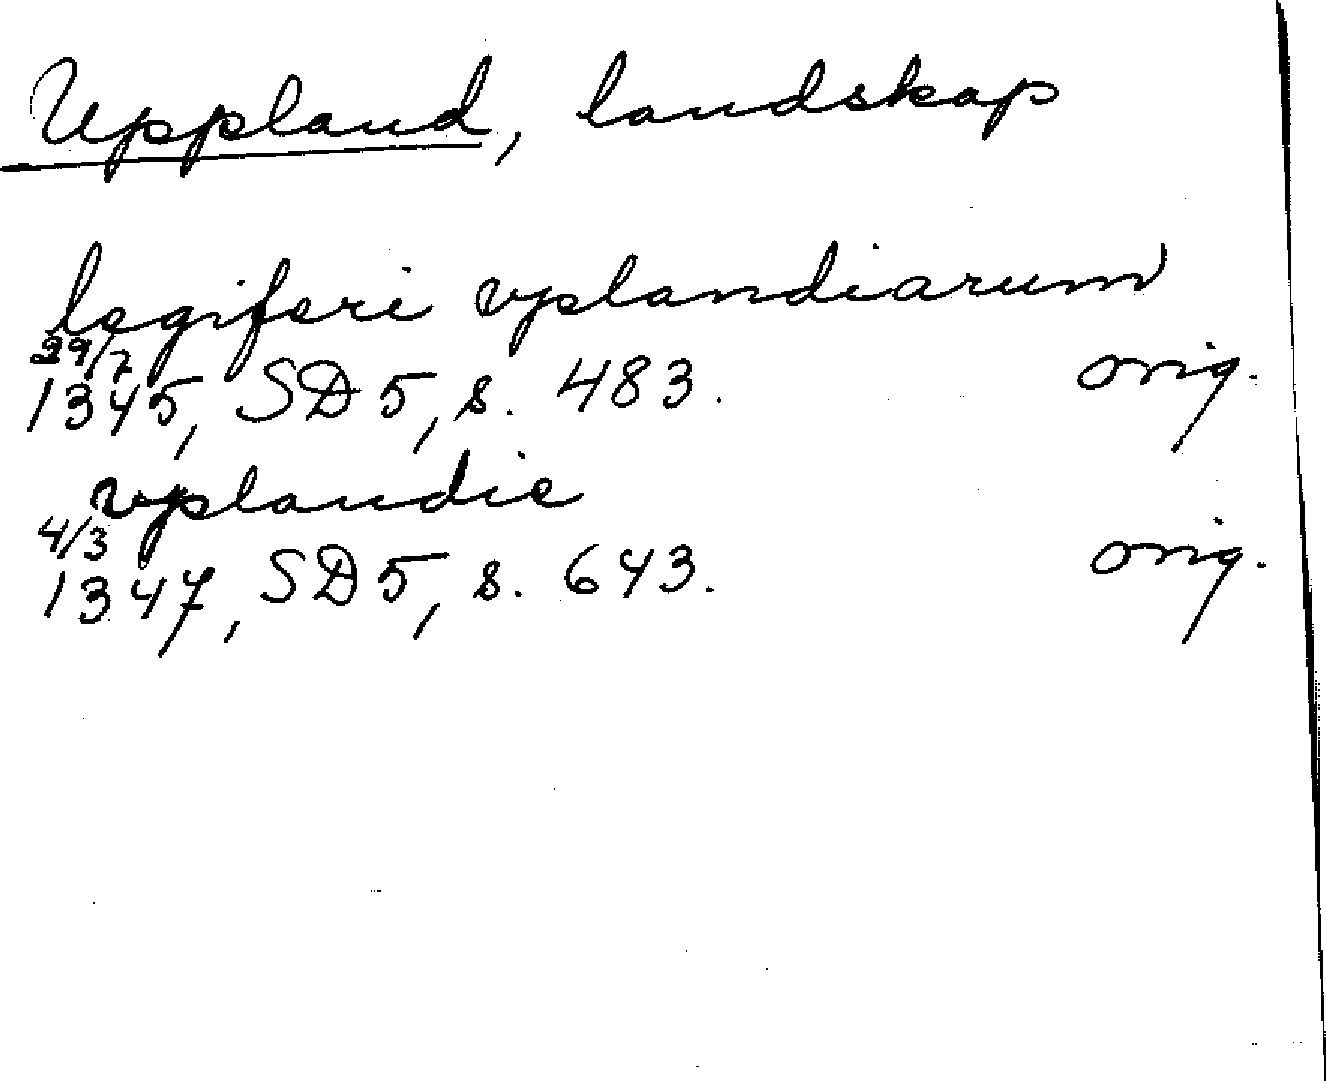 Uppland, landskap
legiferi vplandiarum
29/7
1345, SD 5, s. 483. orig.
vplandie
4/3
1347, SD 5, s. 643. orig.